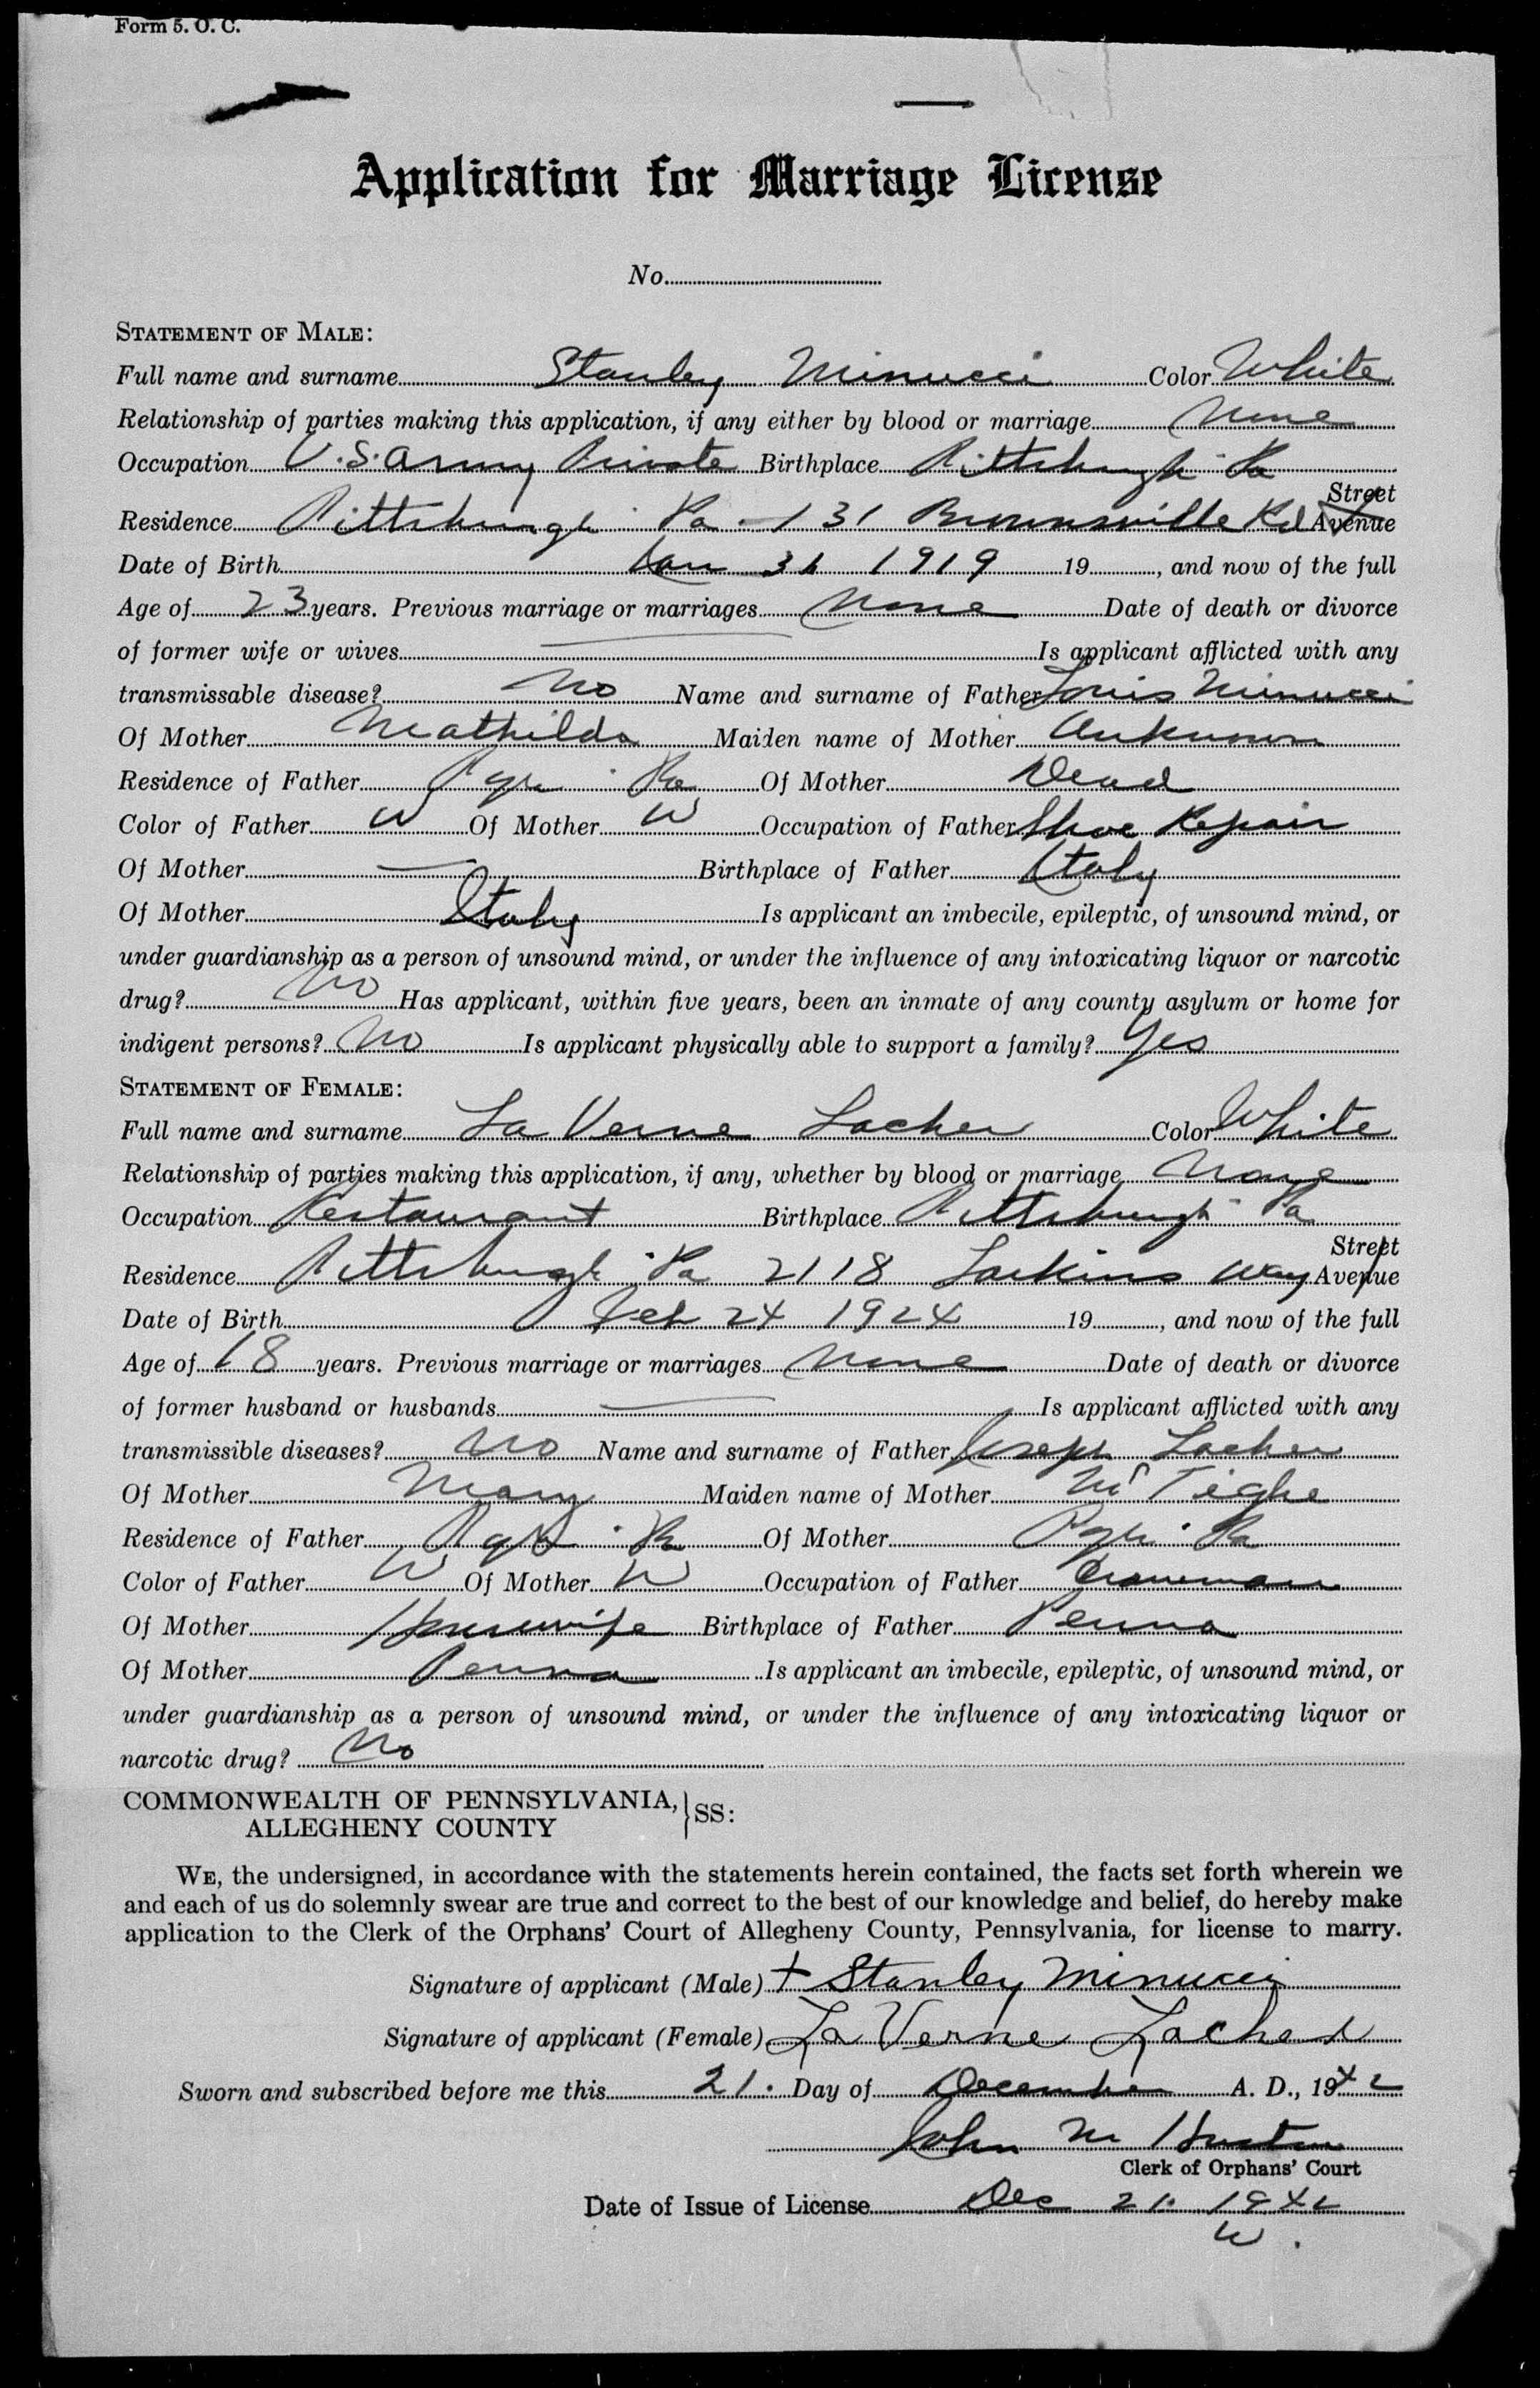 Form 5. O. C.
Application for Marriage License
No.
STATEMENT OF MALE:
Full name and surname Stanley Minucci Color White
Relationship of parties making this application, if any either by blood or marriage None
Occupation U.S. Army Private Birthplace Pittsburgh Pa
Street
Residence Pittsburgh Pa - 131 Brownsville Rd Avenue
Date of Birth Jan 31 1919 19 , and now of the full
Age of 23 years. Previous marriage or marriages None Date of death or divorce
of former wife or wives — Is applicant afflicted with any
transmissable disease? No Name and surname of Father Louis Minucci
Of Mother Mathilda Maiden name of Mother Unknown
Residence of Father Pgh Pa Of Mother Dead
Color of Father W Of Mother W Occupation of Father Shoe Repair
Of Mother — Birthplace of Father Italy
Of Mother Italy Is applicant an imbecile, epileptic, of unsound mind, or
under guardianship as a person of unsound mind, or under the influence of any intoxicating liquor or narcotic
drug? No Has applicant, within five years, been an inmate of any county asylum or home for
indigent persons? No Is applicant physically able to support a family? Yes
STATEMENT OF FEMALE:
Full name and surname La Verne Lacher Color White
Relationship of parties making this application, if any, whether by blood or marriage None
Occupation Restaurant Birthplace Pittsburgh Pa
Street
Residence Pittsburgh Pa 2118 Larkins Way Avenue
Date of Birth Feb 24 1924 19 , and now of the full
Age of 18 years. Previous marriage or marriages None Date of death or divorce
of former husband or husbands — Is applicant afflicted with any
transmissible diseases? No Name and surname of Father Joseph Lacher
Of Mother Mary Maiden name of Mother McTighe
Residence of Father Pgh Pa Of Mother Pgh Pa
Color of Father W Of Mother W Occupation of Father Craneman
Of Mother Housewife Birthplace of Father Penna
Of Mother Penna Is applicant an imbecile, epileptic, of unsound mind, or
under guardianship as a person of unsound mind, or under the influence of any intoxicating liquor or
narcotic drug? No
COMMONWEALTH OF PENNSYLVANIA, } SS:
ALLEGHENY COUNTY
WE, the undersigned, in accordance with the statements herein contained, the facts set forth wherein we
and each of us do solemnly swear are true and correct to the best of our knowledge and belief, do hereby make
application to the Clerk of the Orphans' Court of Allegheny County, Pennsylvania, for license to marry.
Signature of applicant (Male) + Stanley Minucci
Signature of applicant (Female) La Verne Lacher
Sworn and subscribed before me this 21. Day of December A. D., 1942
John M Huston
Clerk of Orphans' Court
Date of Issue of License Dec 21. 1942
W.